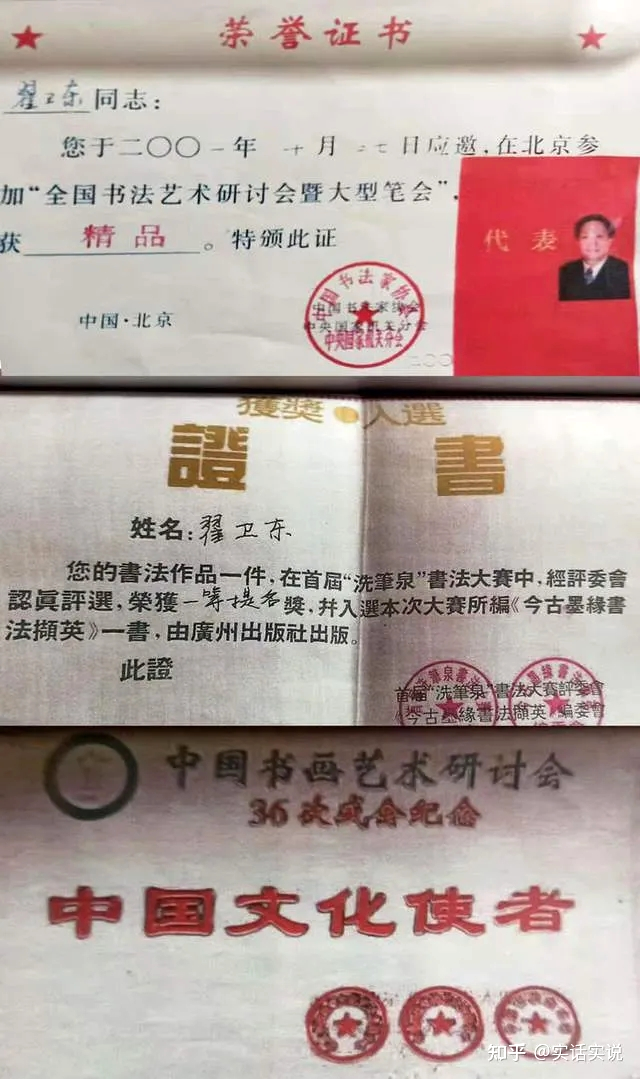 荣誉证书
翟卫东同志：
您于二〇〇一年 十月 二七日应邀，在北京参
加“全国书法艺术研讨会暨大型笔会”，
获 精品 。特颁此证
代表
中国书法家协会
中央国家机关分会
中国·北京
中国书法家协会
中央国家机关分会
二〇〇
獲獎·入選
證書
姓名：翟卫东
您的書法作品一件，在首屆“洗筆泉”書法大賽中，經評委會
認眞評選，榮獲一等提名獎，幷入選本次大賽所編《今古墨緣書
法擷英》一書，由廣州出版社出版。
此證
首屆“洗筆泉”書法大賽評委會
《今古墨緣書法擷英》編委會
中国书画艺术研讨会
36次盛会纪念
中国文化使者
知乎 @实话实说